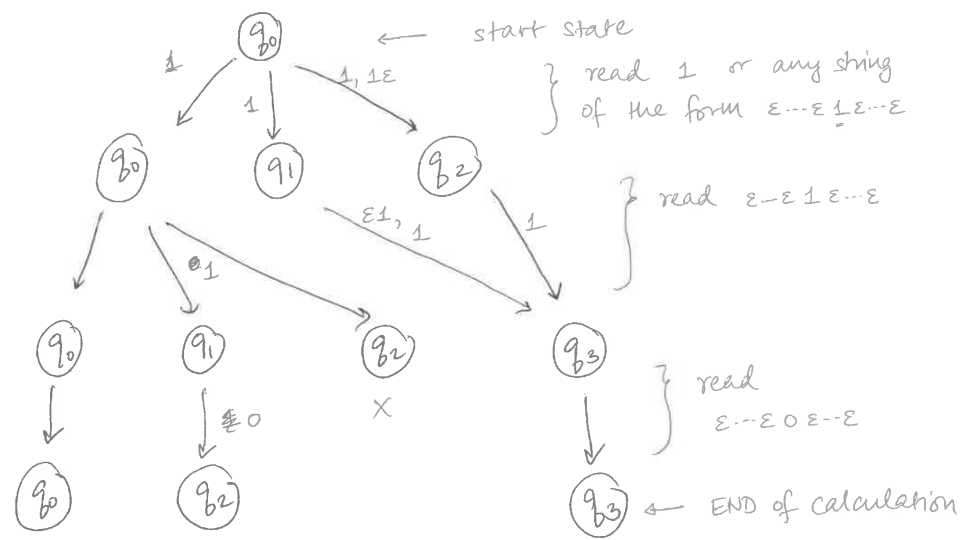 q0 ← start state
1 1 1, 1ε } read 1 or any string
of the form ε---ε 1 ε---ε
q0 q1 q2
ε1, 1 1 } read ε–ε 1 ε---ε
1
q0 q1 q2 q3
X } read
0 ε---ε 0 ε--ε
q0 q2 q3 ← END of calculation